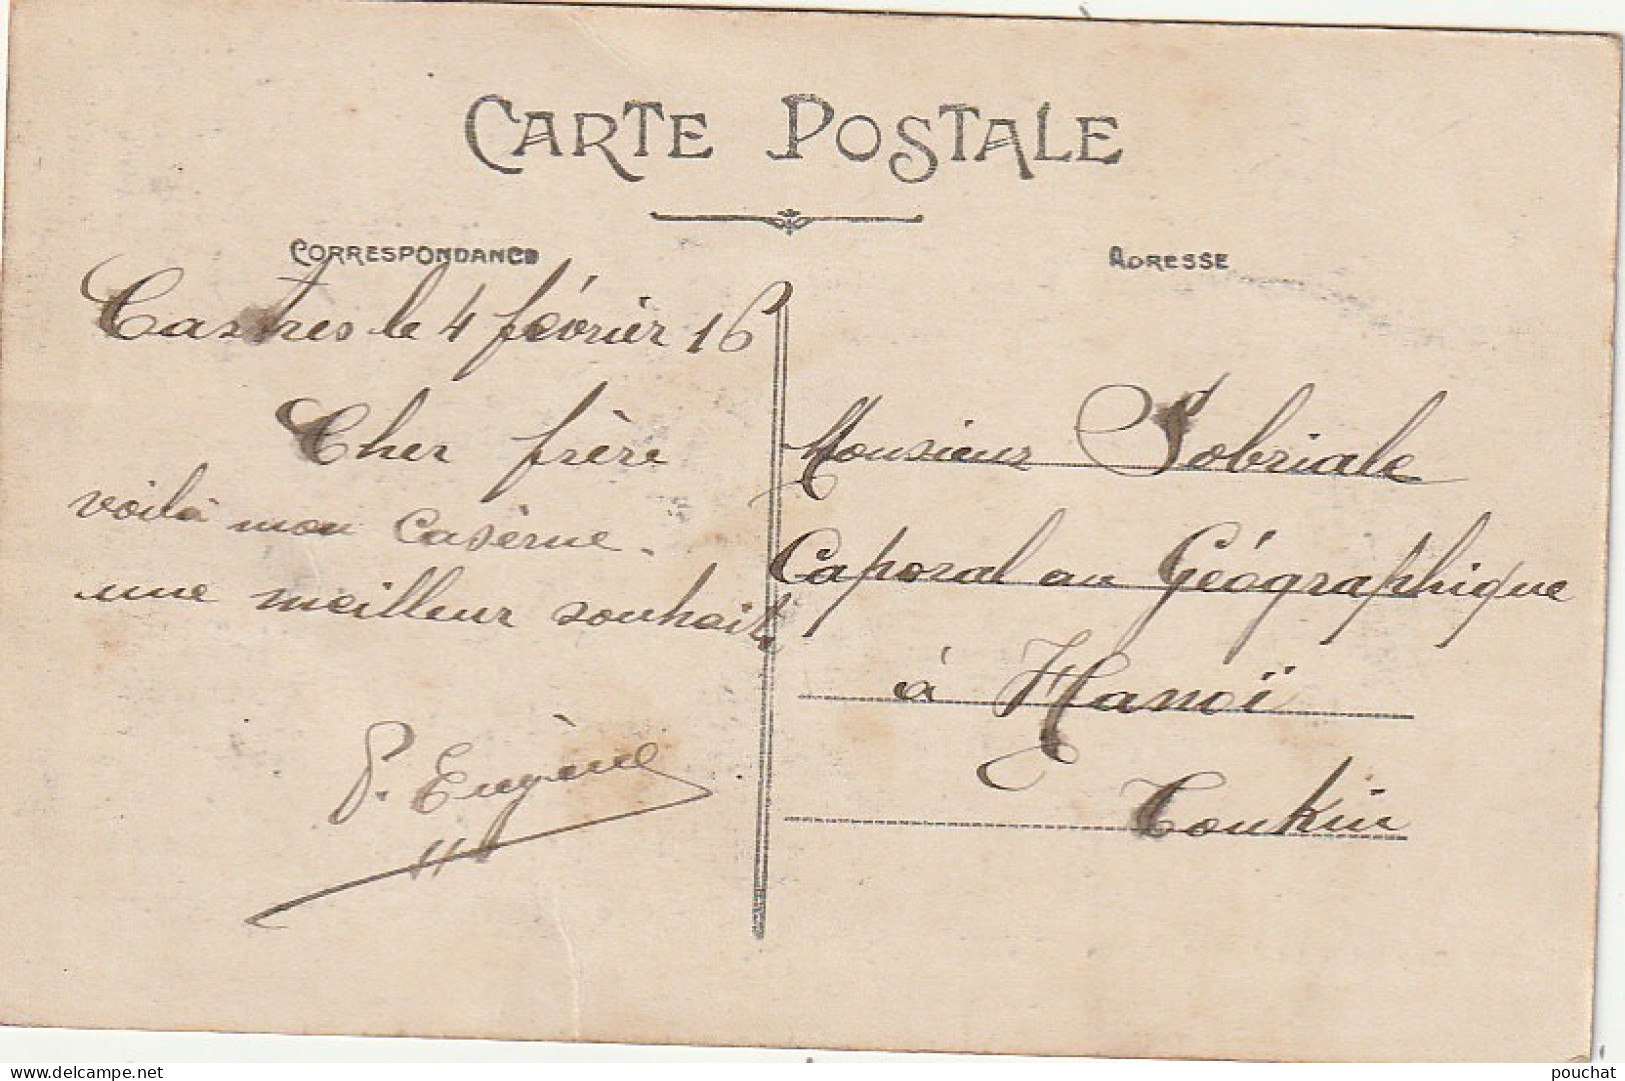 CARTE POSTALE
CORRESPONDANCE
Castres le 4 février 16
Cher frère
voilà mon casèrne.
une meilleur souhait
P. Eugène
ADRESSE
Monsieur Sobriale
Caporal au Géographique
à Hanoï
Tonkin
delcampe.net
pouchat